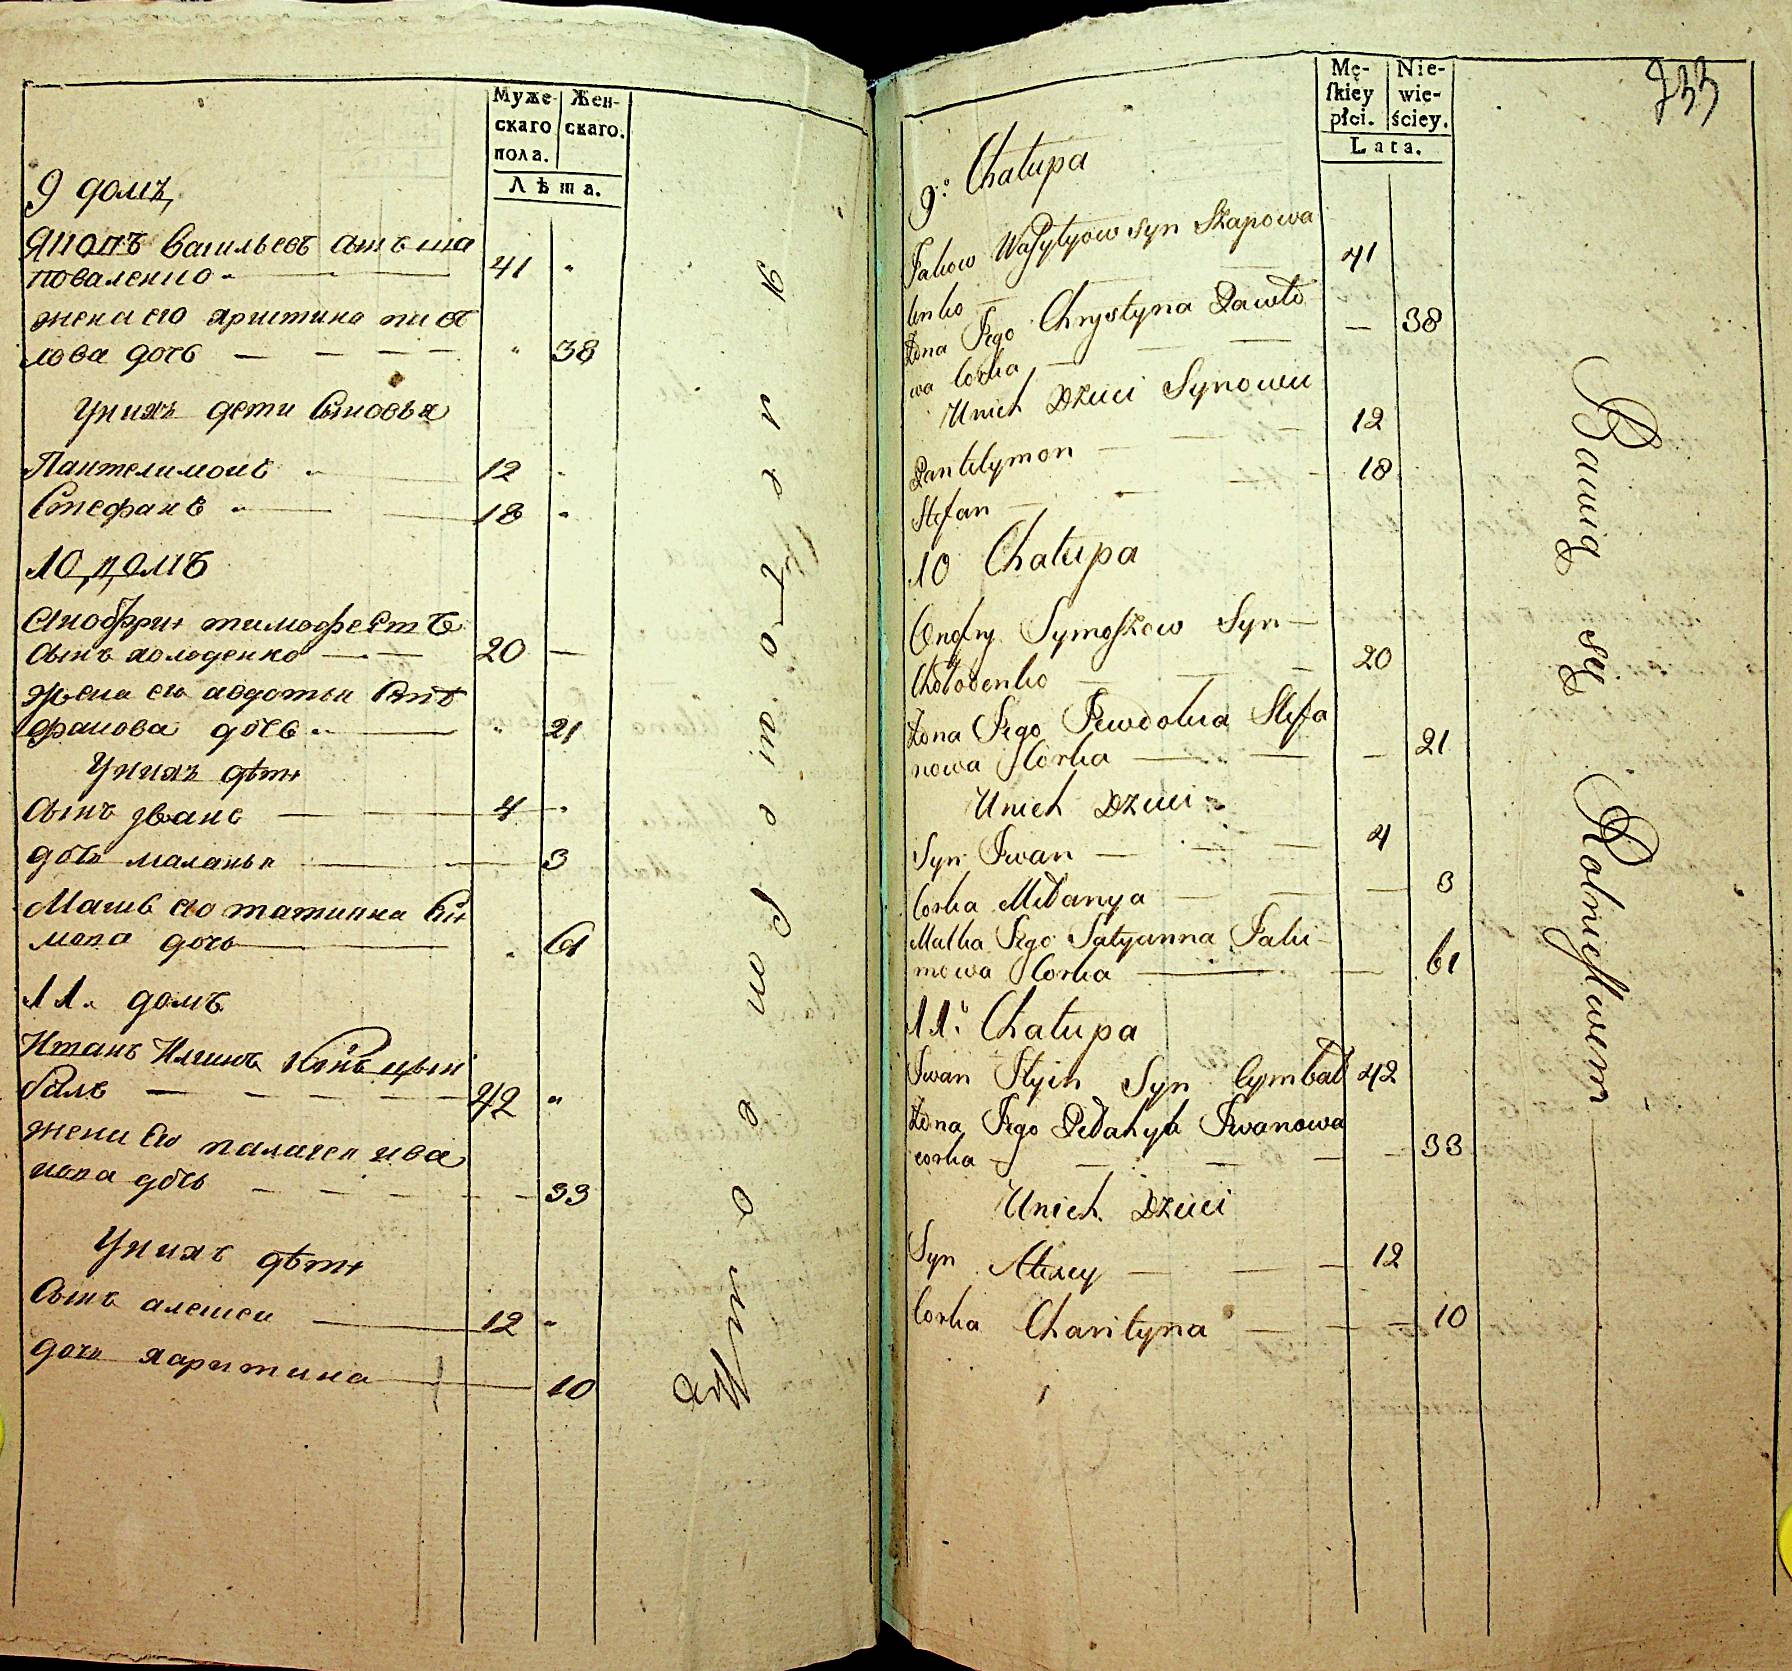 Муже-
скаго
пола.
Жен-
скаго.
Лѣта.
9 домъ
Якопъ Васильевъ сынъ ша
поваленко
жена его христина пав
лова дочь
38
41
Унихъ дети сыновья
Пантелимонъ 12
Стефанъ 18
10 домъ
Анофрии тимофеевъ
сынъ холоденко 20
жена его авдотьи Сте
фанова дочь 21
Унихъ дѣти
сынъ Иванъ 4
дочь маланья 3
Мать его татианна
мова дочь 61
11. домъ
Иванъ Илинъ сынъ цын
балъ 42
жена его палагея ива
нова дочь 33
Унихъ дѣти
Сынъ алексеи 12
дочь харитина 10
Mę-
ſkiey
płci.
Nie-
wie-
ściey.
Lata.
233
9.o Chałupa
Jakow Waſylyow syn Szapowa
lenko 41
Żona Jego Chrystyna Pawło
wa Corka 38
Unich Dzieci Synowie
Pantelymon 12
Stefan 18
10 Chałupa
Onofry Tymoſzow Syn
Chołodenko 20
Żona Jego Jewdokia Stefa
nowa Corka 21
Unich Dzieci
Syn Iwan 4
Corka Mełanya 3
Matka Jego Tatyanna Jaki
mowa Corka 61
11.o Chałupa
Iwan Ilyin Syn Cymbał 42
Żona Jego Pełahyia Iwanowa
corka 33
Unich Dzieci
Syn Alexey 12
Corka Charityna 10
Bawią się Rolnictwem